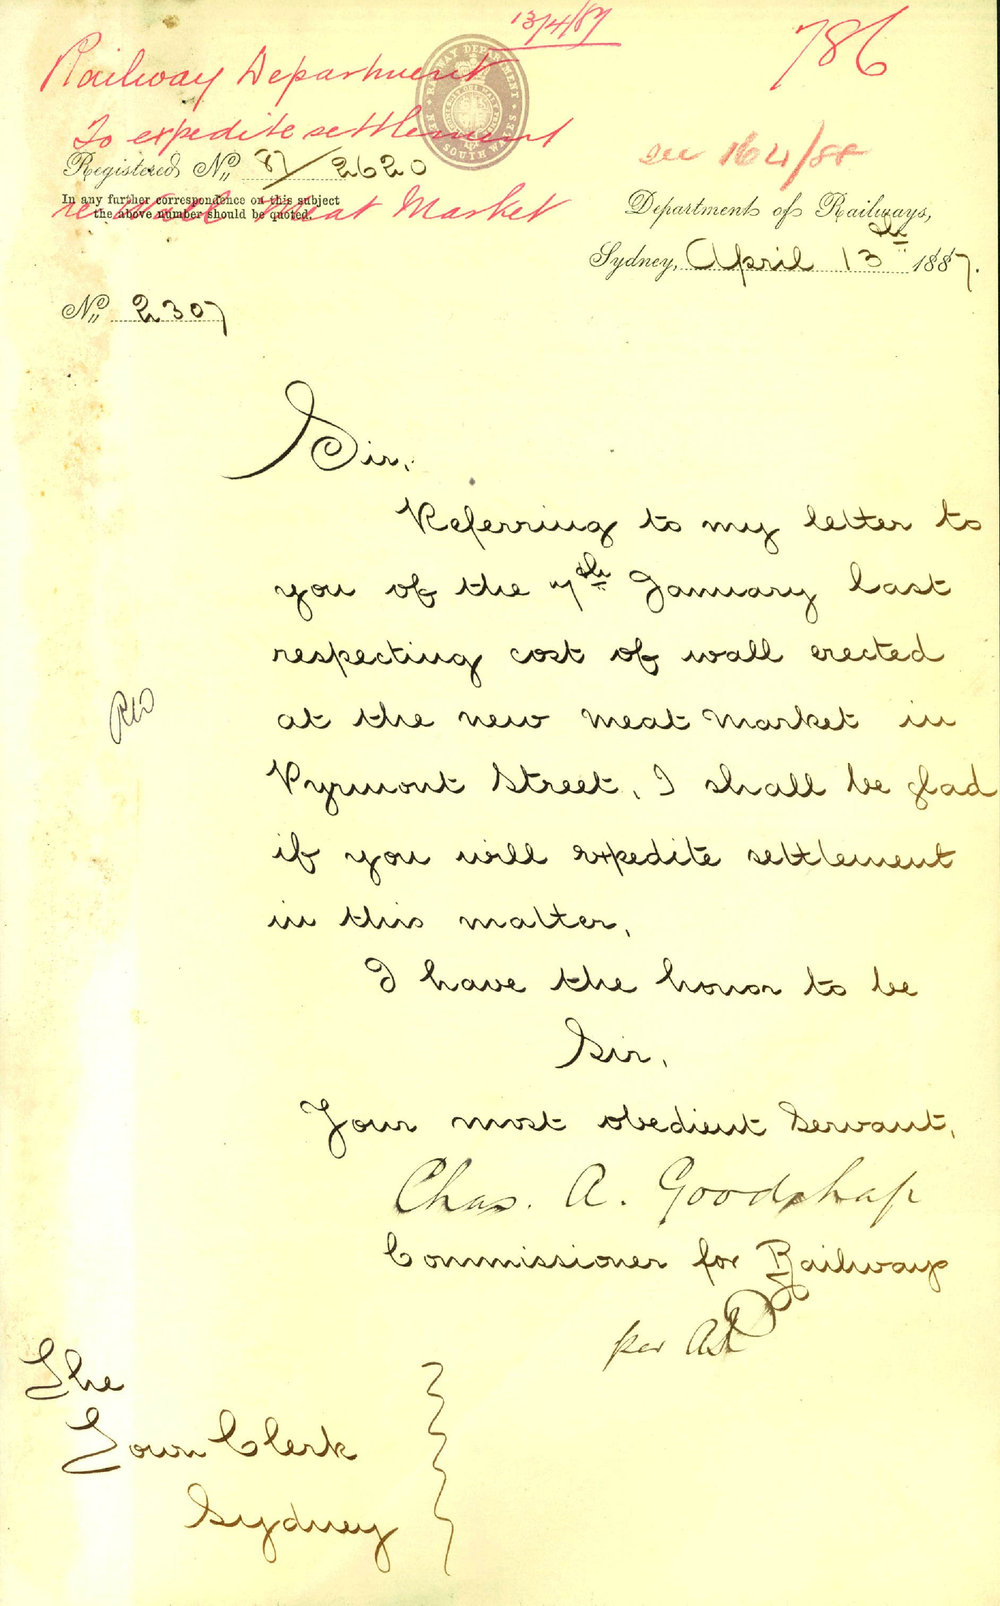 13/4/87
786
Railway Department
To expedite settlement
re wall Meat Market
RAILWAY DEPARTMENT
NEW SOUTH WALES
see 1641/88
Registered No. 87/2620
In any further correspondence on this subject
the above number should be quoted.
Department of Railways,
Sydney, April 13th 1887.
No. 2307
Sir,
Referring to my letter to
you of the 7th January last
respecting cost of wall erected
at the new meat market in
Pyrmont Street, I shall be glad
if you will expedite settlement
in this matter.
I have the honor to be
Sir,
Your most obedient Servant,
Chas. A. Goodchap
Commissioner for Railways
per
The
Town Clerk
Sydney